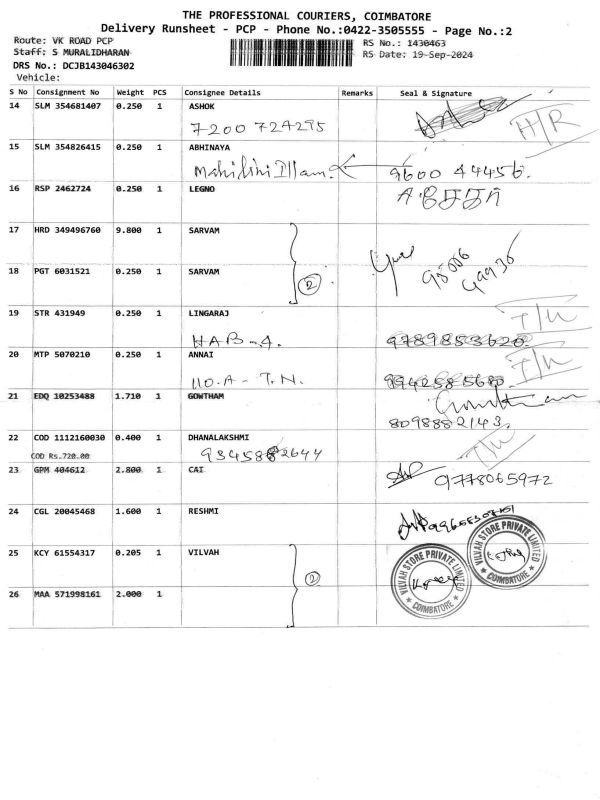 THE PROFESSIONAL COURIERS, COIMBATORE
Delivery Runsheet - PCP - Phone No.:0422-3505555 - Page No.:2
Route: VK ROAD PCP RS No.: 1430463
Staff: S MURALIDHARAN RS Date: 19-Sep-2024
DRS No.: DCJB143046302
Vehicle:
S No Consignment No Weight PCS Consignee Details Remarks Seal & Signature
14 SLM 354681407 0.250 1 ASHOK
7200 724295 H/R
15 SLM 354826415 0.250 1 ABHINAYA
Illam 9600 44456
16 RSP 2462724 0.250 1 LEGNO
17 HRD 349496760 9.800 1 SARVAM
2
18 PGT 6031521 0.250 1 SARVAM
19 STR 431949 0.250 1 LINGARAJ
HAB-4. 9789853620
20 MTP 5070210 0.250 1 ANNAI
110.A - T.N. 9942585680
21 EDQ 10253488 1.710 1 GOWTHAM
8098882143
22 COD 1112160030 0.400 1 DHANALAKSHMI
COD Rs.720.00 9345882644
23 GPM 404612 2.800 1 CAI
9778065972
24 CGL 20045468 1.600 1 RESHMI
25 KCY 61554317 0.205 1 VILVAH
2
VILVAH STORE PRIVATE LIMITED
COIMBATORE
VILVAH STORE PRIVATE LIMITED
COIMBATORE
26 MAA 571998161 2.000 1